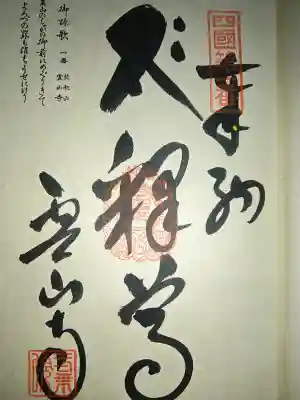 四國第一番
奉納
釋尊
霊山寺
御詠歌 一番 竺和山 霊山寺
霊山のしゃかの御前にめぐりきて
よろづの罪も消えうせにけり